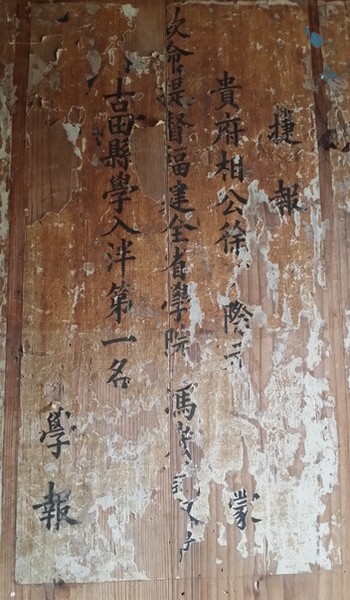 捷報
貴府相公徐 際 蒙
欽命提督福建全省學院 馮 取
古田縣學入泮第一名
學報